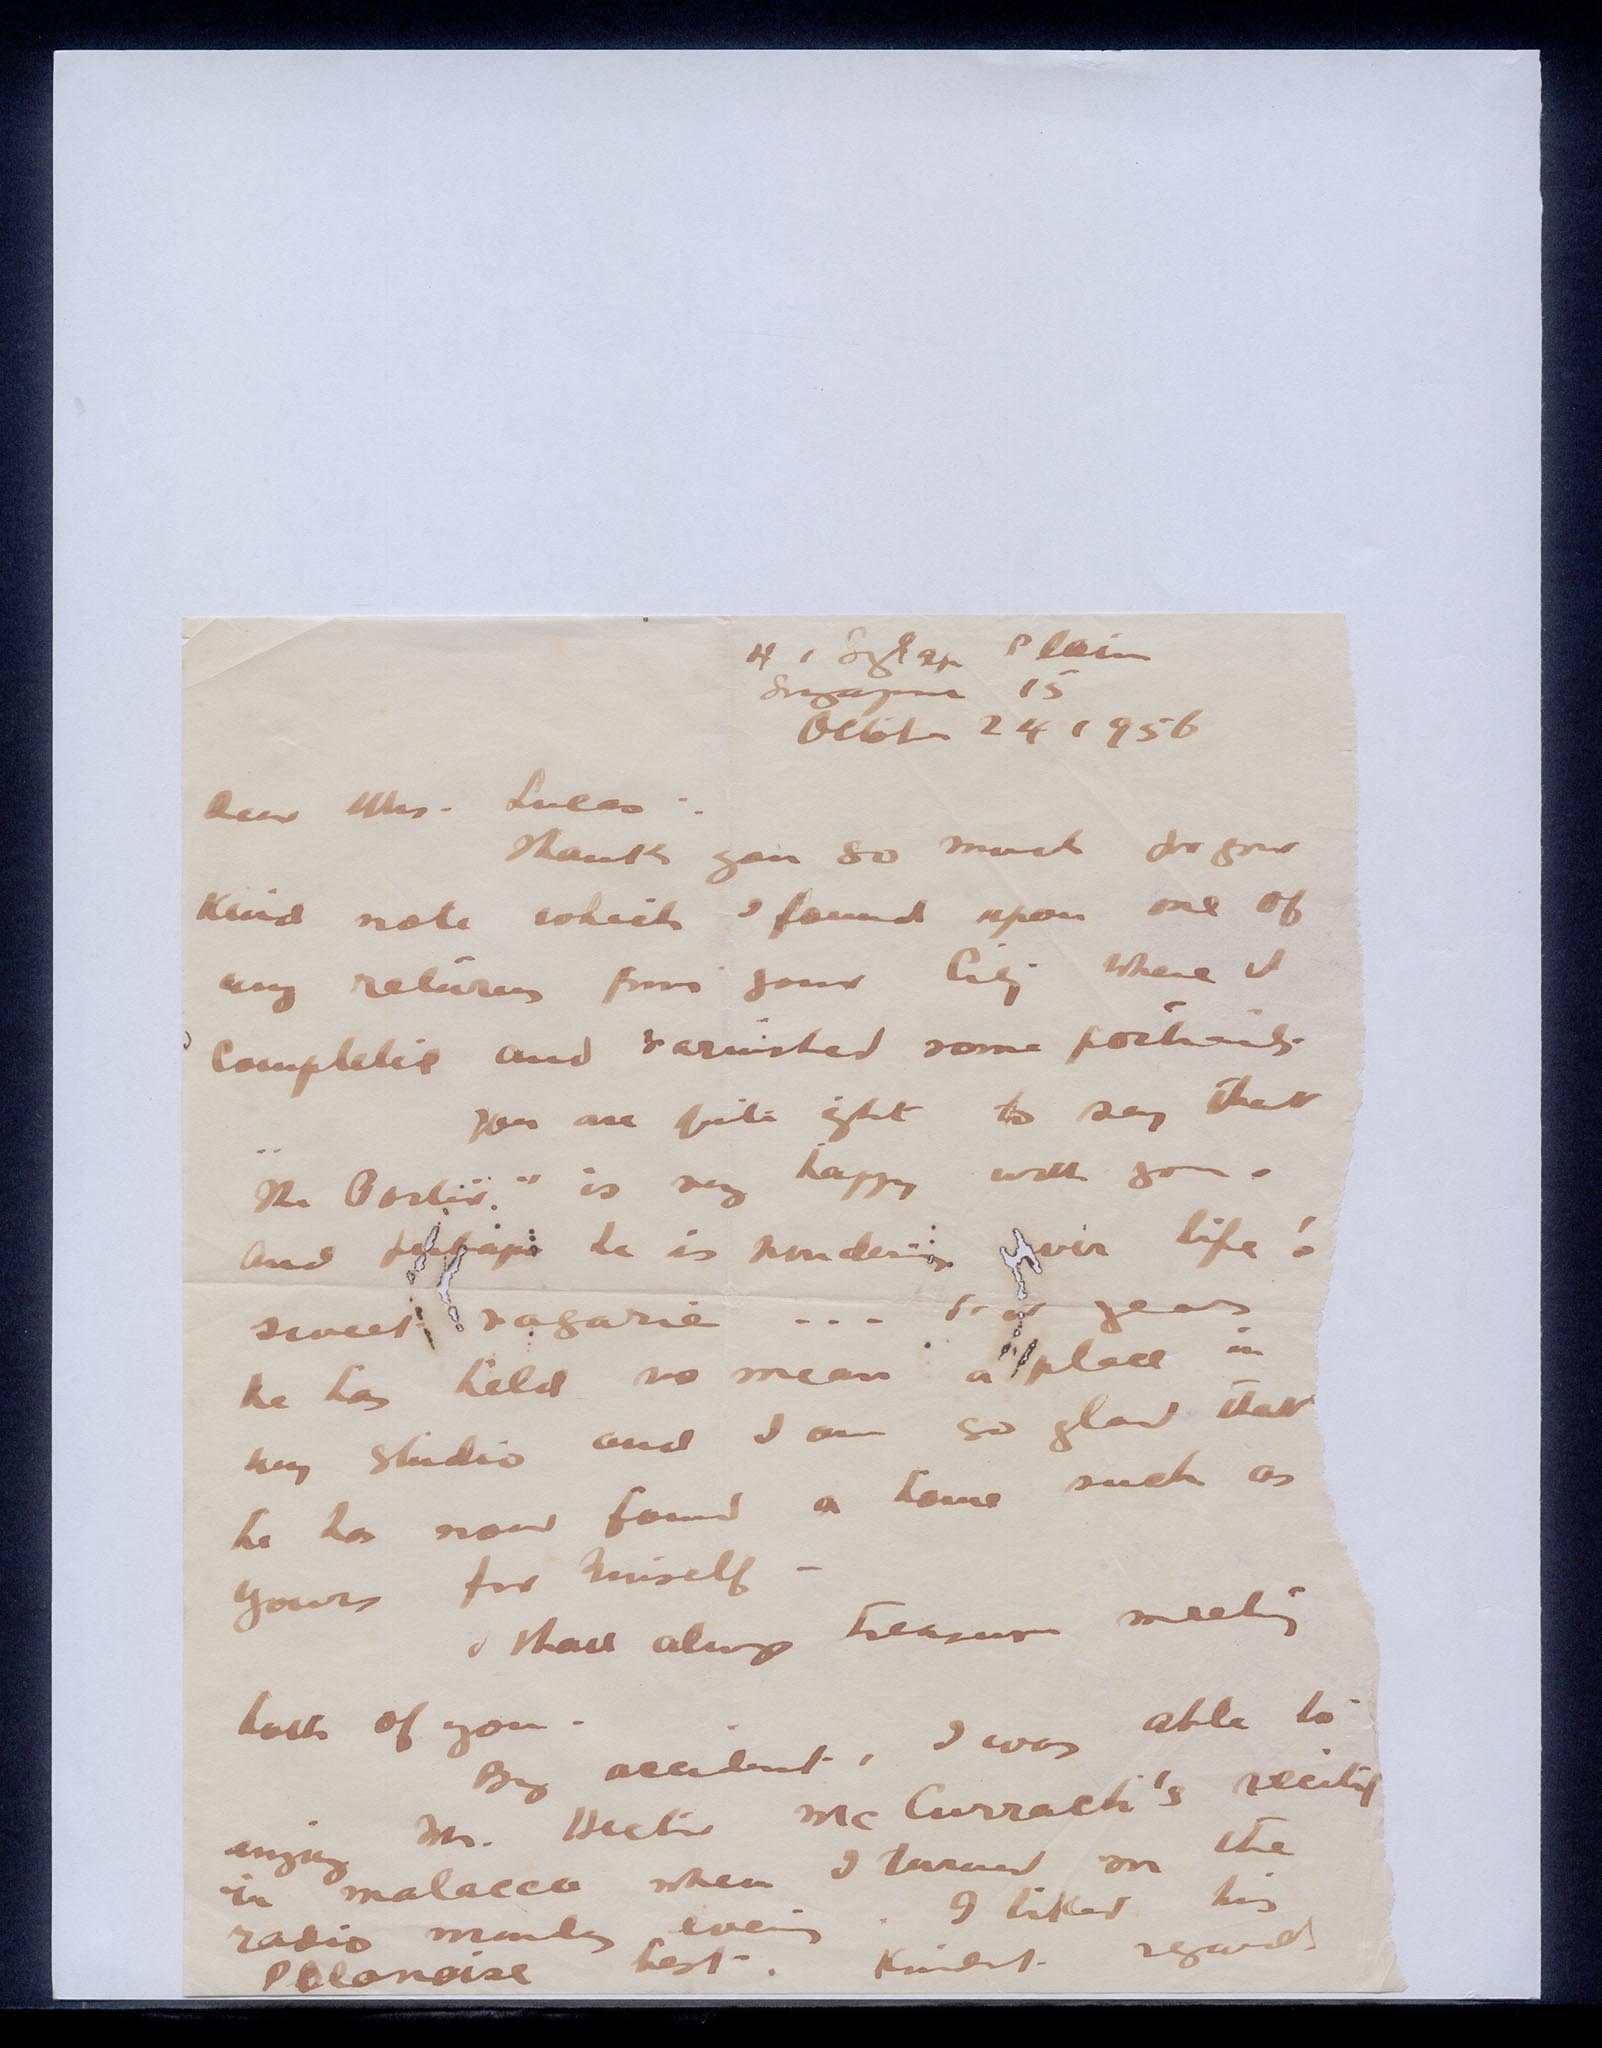 41 Siglap Plain
Singapore 15
October 24 1956
Dear Mrs. Lucas :
Thank you so much for your
kind note which I found upon one of
my returns from your City where I
completed and varnished some portraits.
You are quite right to say that
"The Poster" is very happy with you.
and perhaps he is wondering over life!
sweet vagarie ... For years
he has held no mean a place in
my studio and I am so glad that
he has now found a home such as
yours for himself -
I shall always treasure meeting
both of you.
By accident, I was able to
enjoy Mr. Hector McCurrach's recital
in Malacca when I turned on the
radio monday evening. I liked his
Polonaise best. Kindest regards